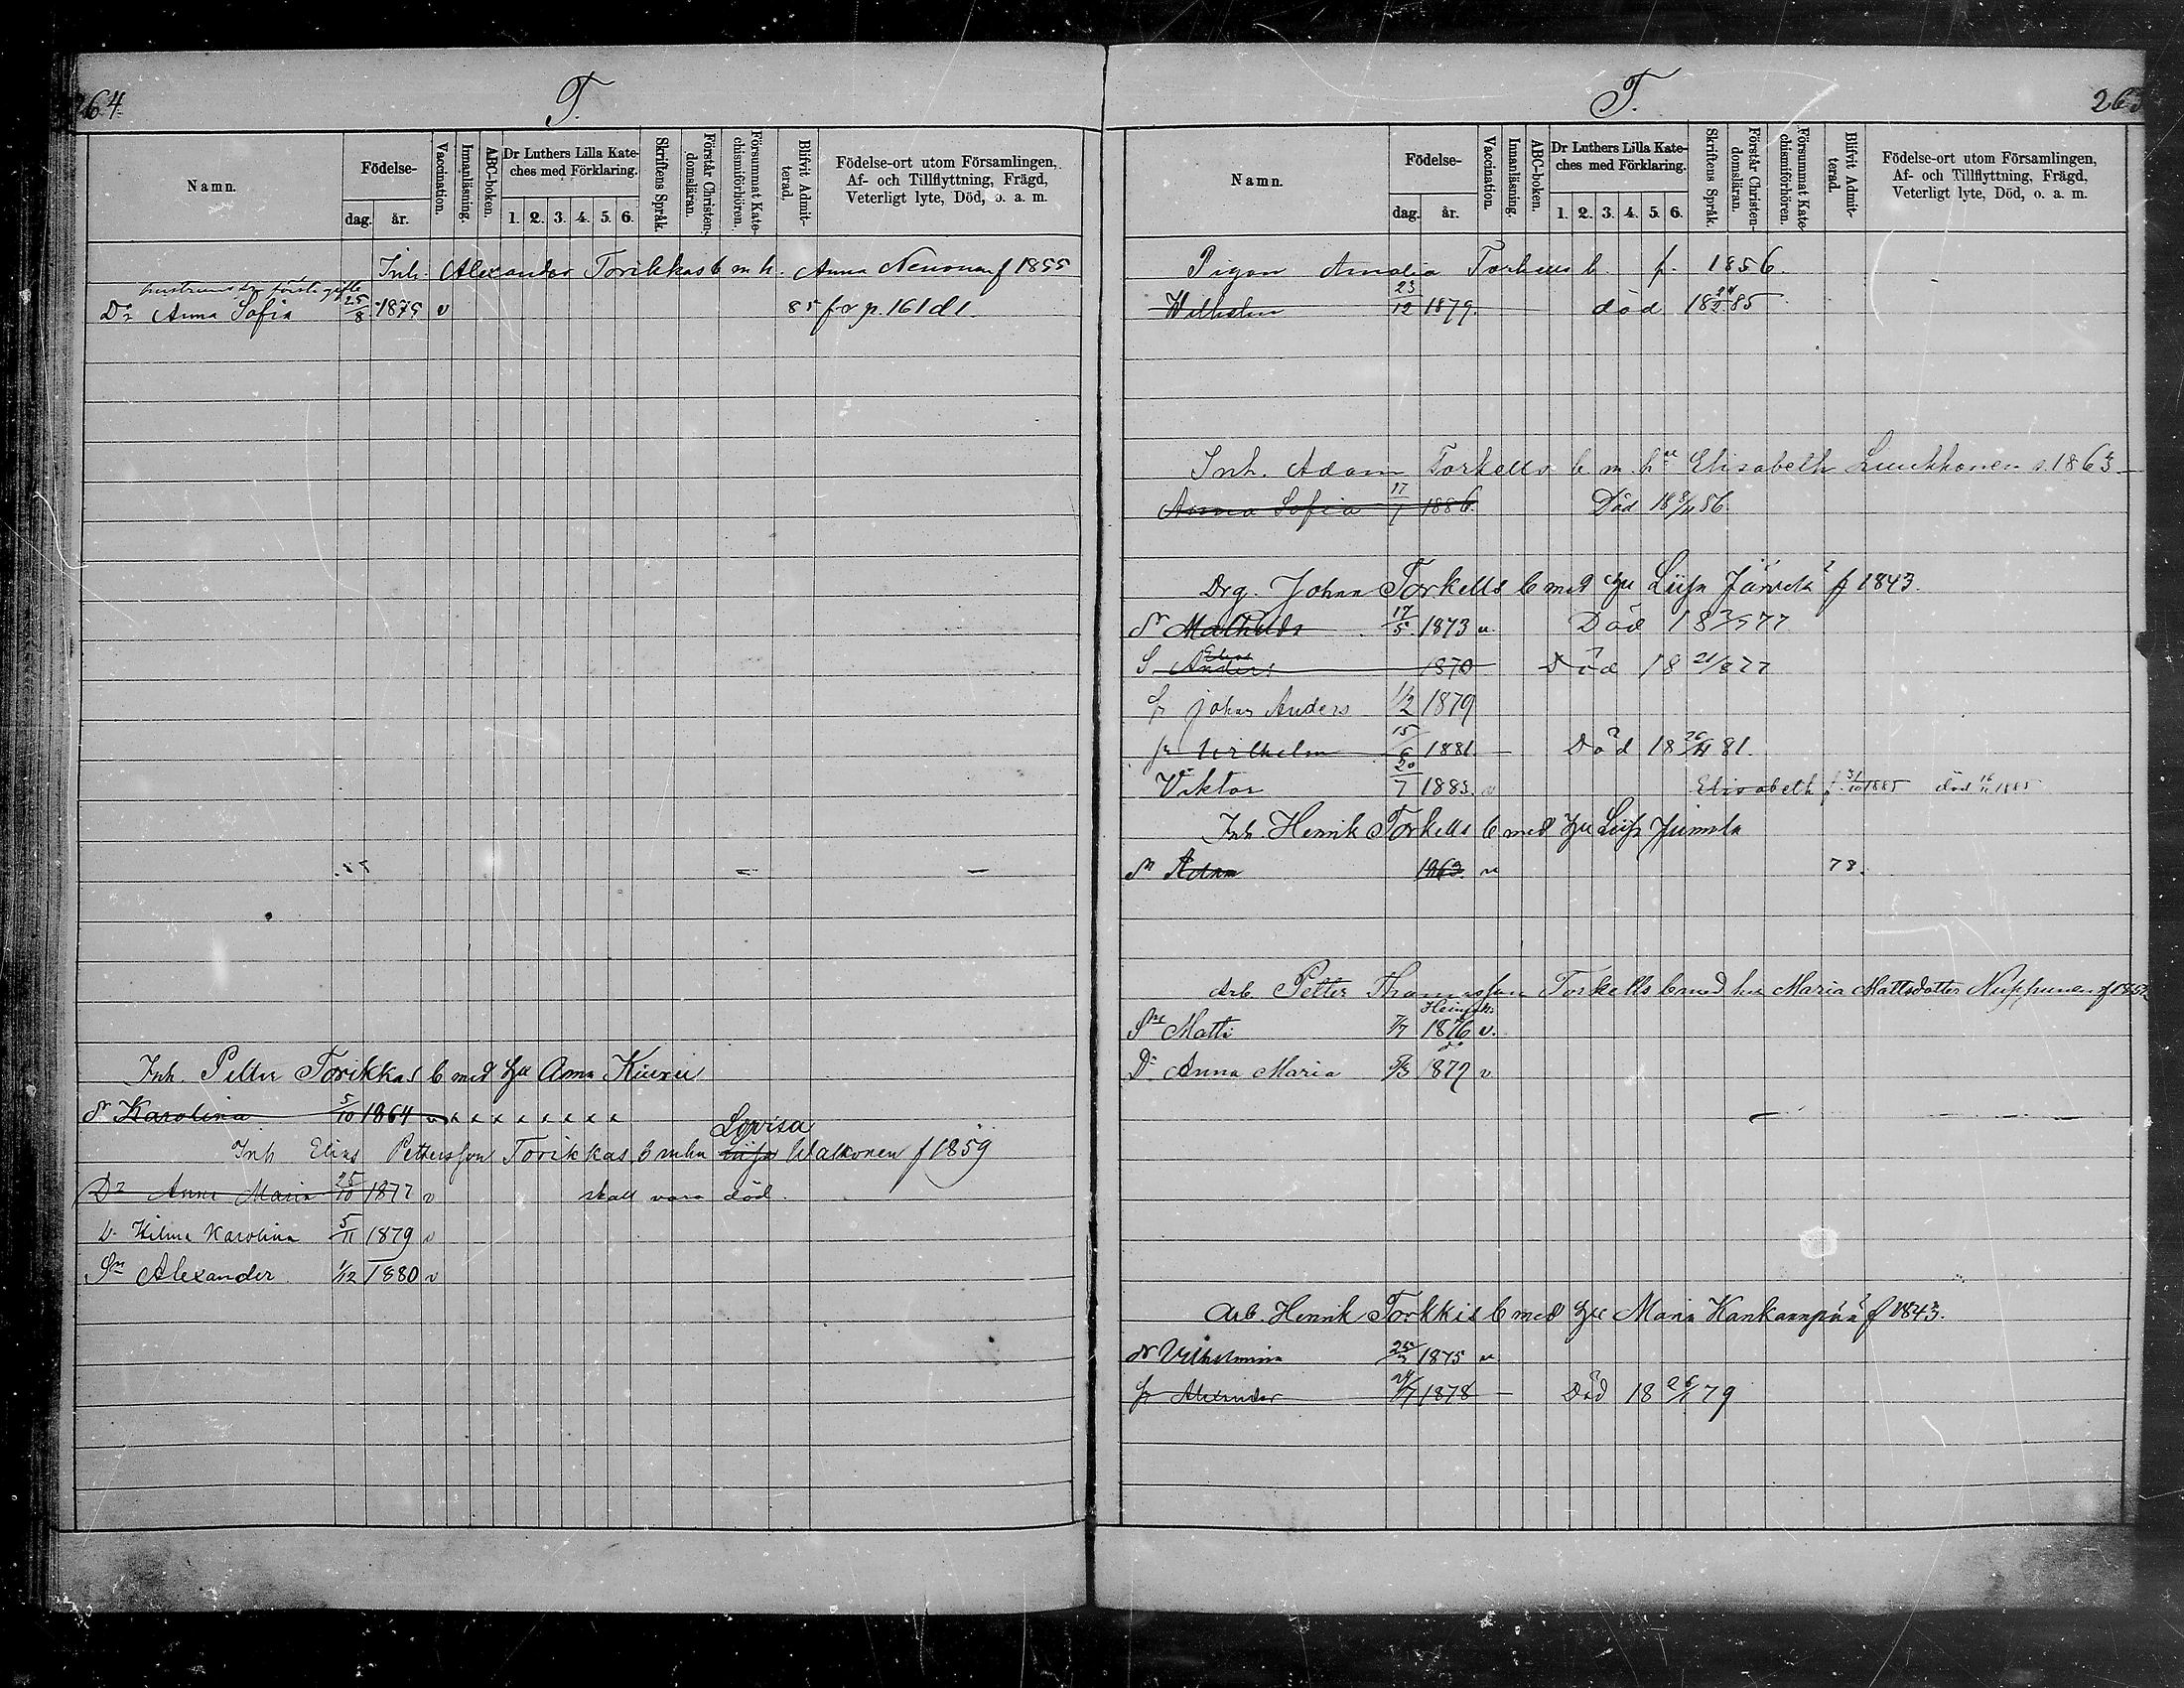 264
T.
Namn.
Födelse-
dag.
år.
Vaccination.
Innanläsning.
ABC-boken.
Dr Luthers Lilla Kate-
ches med Förklaring.
1. 2. 3. 4. 5. 6.
Skriftens Språk.
Förstår Christen-
domsläran.
Försummat Kate-
chismiförhören.
Blifvit Admit-
terad.
Födelse-ort utom Församlingen,
Af- och Tillflyttning, Frägd,
Veterligt lyte, Död, o. a. m.
Inh. Alexander Torikkas b m h. Anna f 1855
Dr Anna Sofia 25/8 1875 v 85 fr p. 161 d 1.
Inh. Petter Torikkas b med hu Anna Kiuru
Dr Karolina 5/10 1864 v x x x x x x x x
Lovisa
Inh Elias Petersson Torikkas b m hu Liisa Walkonen f 1859
Dr Anna Maria 25/10 1877 v skall vara död.
D. Hilma Karolina 5/11 1879 v
Sn Alexander 1/12 1880 v
T.
Namn.
Födelse-
dag.
år.
Vaccination.
Innanläsning.
ABC-boken.
Dr Luthers Lilla Kate-
ches med Förklaring.
1. 2. 3. 4. 5. 6.
Skriftens Språk.
Förstår Christen-
domsläran.
Försummat Kate-
chismiförhören.
Blifvit Admit-
terad.
Födelse-ort utom Församlingen,
Af- och Tillflyttning, Frägd,
Veterligt lyte, Död, o. a. m.
Pigan Amalia Torkells b. f. 1856.
Wilhelm 23/12 1879. död 18 24/2 85
Inh. Adam Torkells b m. hu Elisabeth 1863
Anna Sofia 17/1 1886. Död 18 8/11 86.
Drg. Johan Torkells b med hu Liisa Järvelä f 1843.
Dr Mathilda 17/5 1873 v. Död 18 2/5 77
Elias
S Anders 1870 Död 18 21/8 77
Sn Johan Anders 1/2 1879
Sn Wilhelm 15/6 1881. Död 18 26/11 81.
Viktor 20/7 1883. v Elisabeth f. 31/10 1885 död 16/11 1885
Inh. Henrik Torkells b med hu Liisa Jumala
Sn Adam 1863. v 78.
Arb. Petter Thomasson Torkells b med hu Maria Mattsdotter Nuppunen
Sn Matti 7/7 1876 v.
Dr Anna Maria 5/3 1879 v
Arb. Henrik Torkkis b med hu Maria Kankaanpää f 1843.
Dr Vilhelmina 25/3 1875 v
Sn Alexander 24/7 1878 Död 18 26/1 79